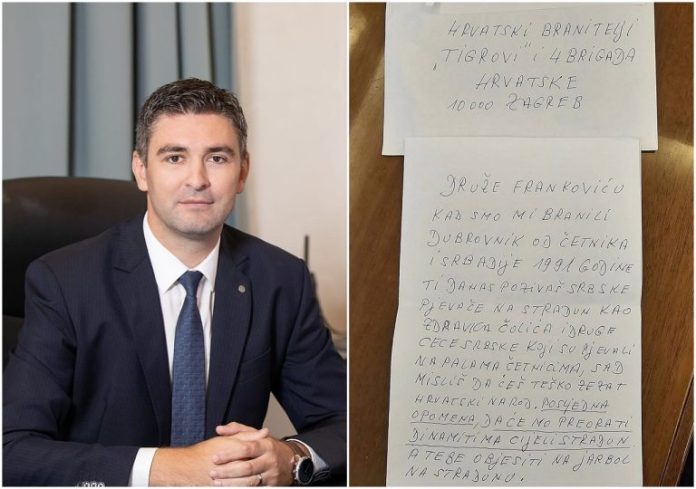 HRVATSKI BRANITELJI
„TIGROVI" i 4 BRIGADA
HRVATSKE
10000 ZAGREB
DRUŽE FRANKOVIĆU
KAD SMO MI BRANILI
DUBROVNIK OD ČETNIKA
I SRBADIJE 1991 GODINE
TI DANAS POZIVAŠ SRBSKE
PJEVAČE NA STRADUN KAO
ZDRAVICA ČOLIĆA I DRUGE
CECE SRBSKE KOJI SU PJEVALI
NA PALAMA ČETNICIMA, SAD
MISLIŠ DA ĆEŠ TEŠKO ZEZAT
HRVATSKI NAROD. POSIJEDNA
OPOMENA, DAĆE MO PREORATI
DINAMITIMA CIJELI STRADUN
A TEBE OBJESITI NA JARBOL
NA STRADUNU.